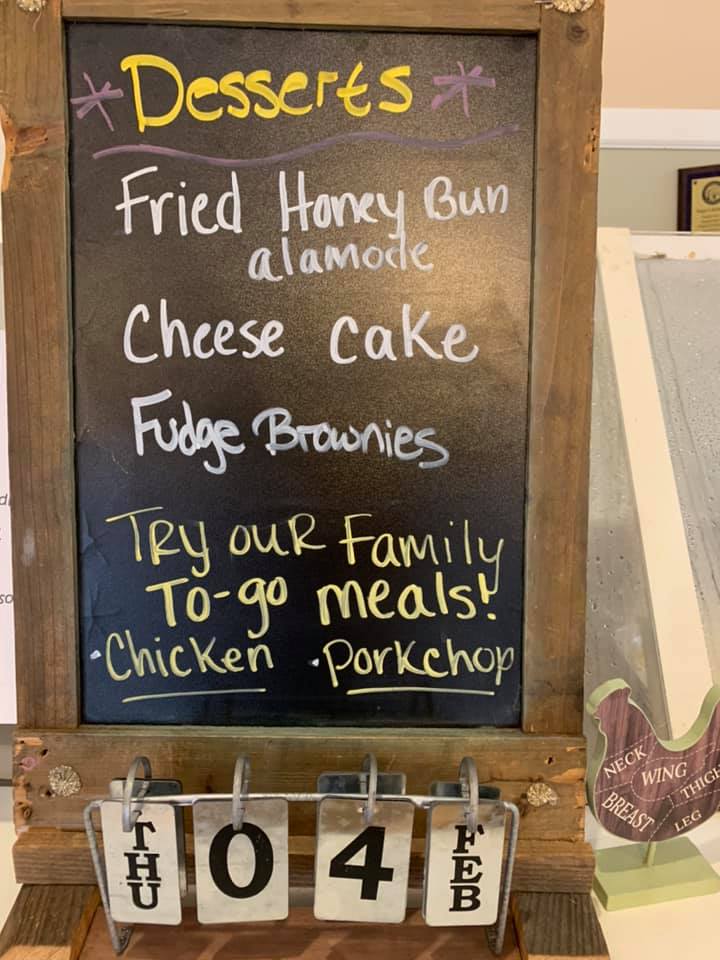 *Desserts*
Fried Honey Bun
alamode
Cheese Cake
Fudge Brownies
Try our Family
To-go meals!
•Chicken •Porkchop
THU 04 FEB
NECK
WING
THIGH
BREAST
LEG